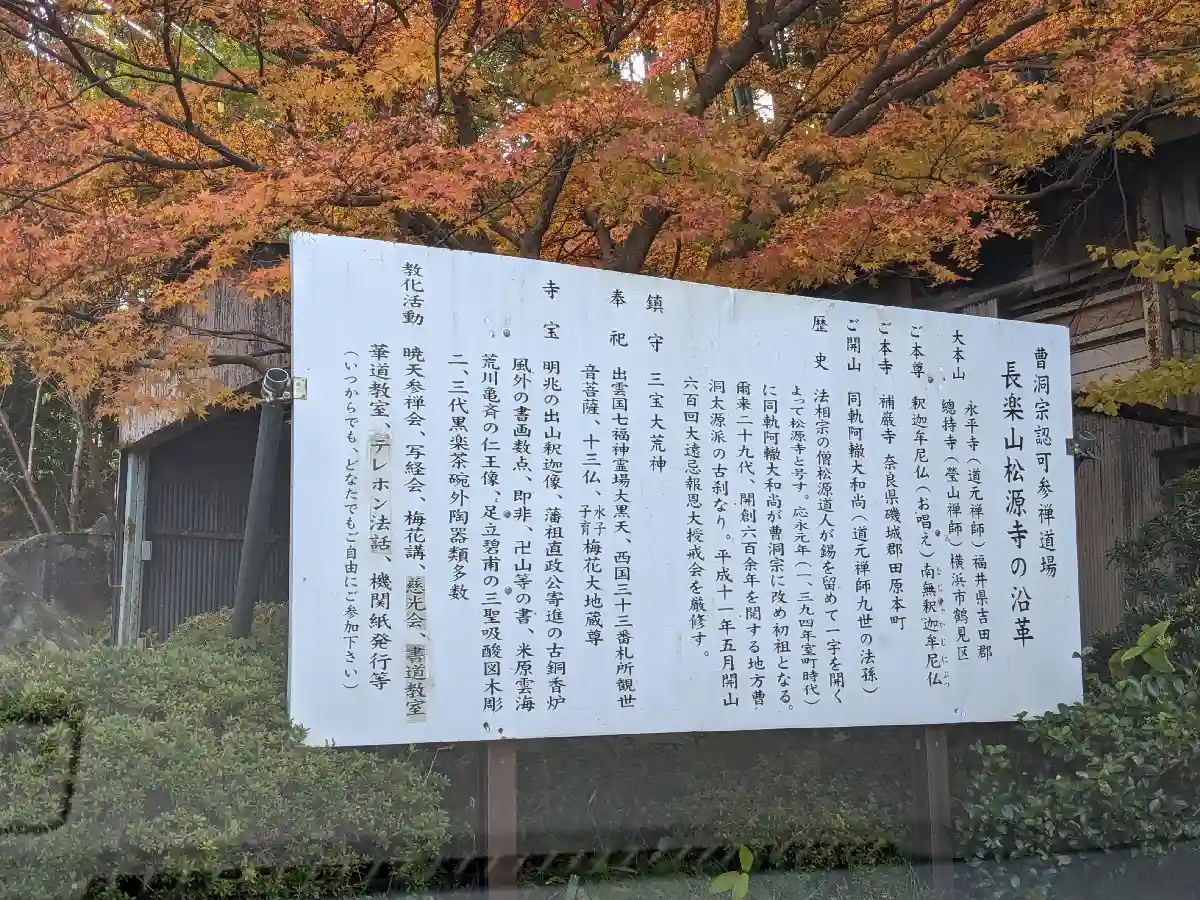 曹洞宗認可参禅道場
長楽山松源寺の沿革
大本山 永平寺（道元禅師）福井県吉田郡
總持寺（瑩山禅師）横浜市鶴見区
ご本尊 釈迦牟尼仏（お唱え）南無釈迦牟尼仏
ご本寺 補巌寺 奈良県磯城郡田原本町
ご開山 同軌阿轍大和尚（道元禅師九世の法孫）
歴史 法相宗の僧松源道人が錫を留めて一宇を開く
よって松源寺と号す。応永元年（一、三九四年室町時代）
に同軌阿轍大和尚が曹洞宗に改め初祖となる。
爾来二十九代、開創六百余年を関する地方曹
洞太源派の古刹なり。平成十一年五月開山
六百回大遠忌報恩大授戒会を厳修す。
鎮守 三宝大荒神
奉祀 出雲国七福神霊場大黒天、西国三十三番札所観世
音菩薩、十三仏、水子子育梅花大地蔵尊
寺宝 明兆の出山釈迦像、藩祖直政公寄進の古銅香炉
風外の書画数点、即非、卍山等の書、米原雲海
荒川亀斎の仁王像、足立碧甫の三聖吸酸図木彫
二、三代黒楽茶碗外陶器類多数
教化活動 暁天参禅会、写経会、梅花講、慈光会、書道教室
華道教室、テレホン法話、機関紙発行等
（いつからでも、どなたでもご自由にご参加下さい）